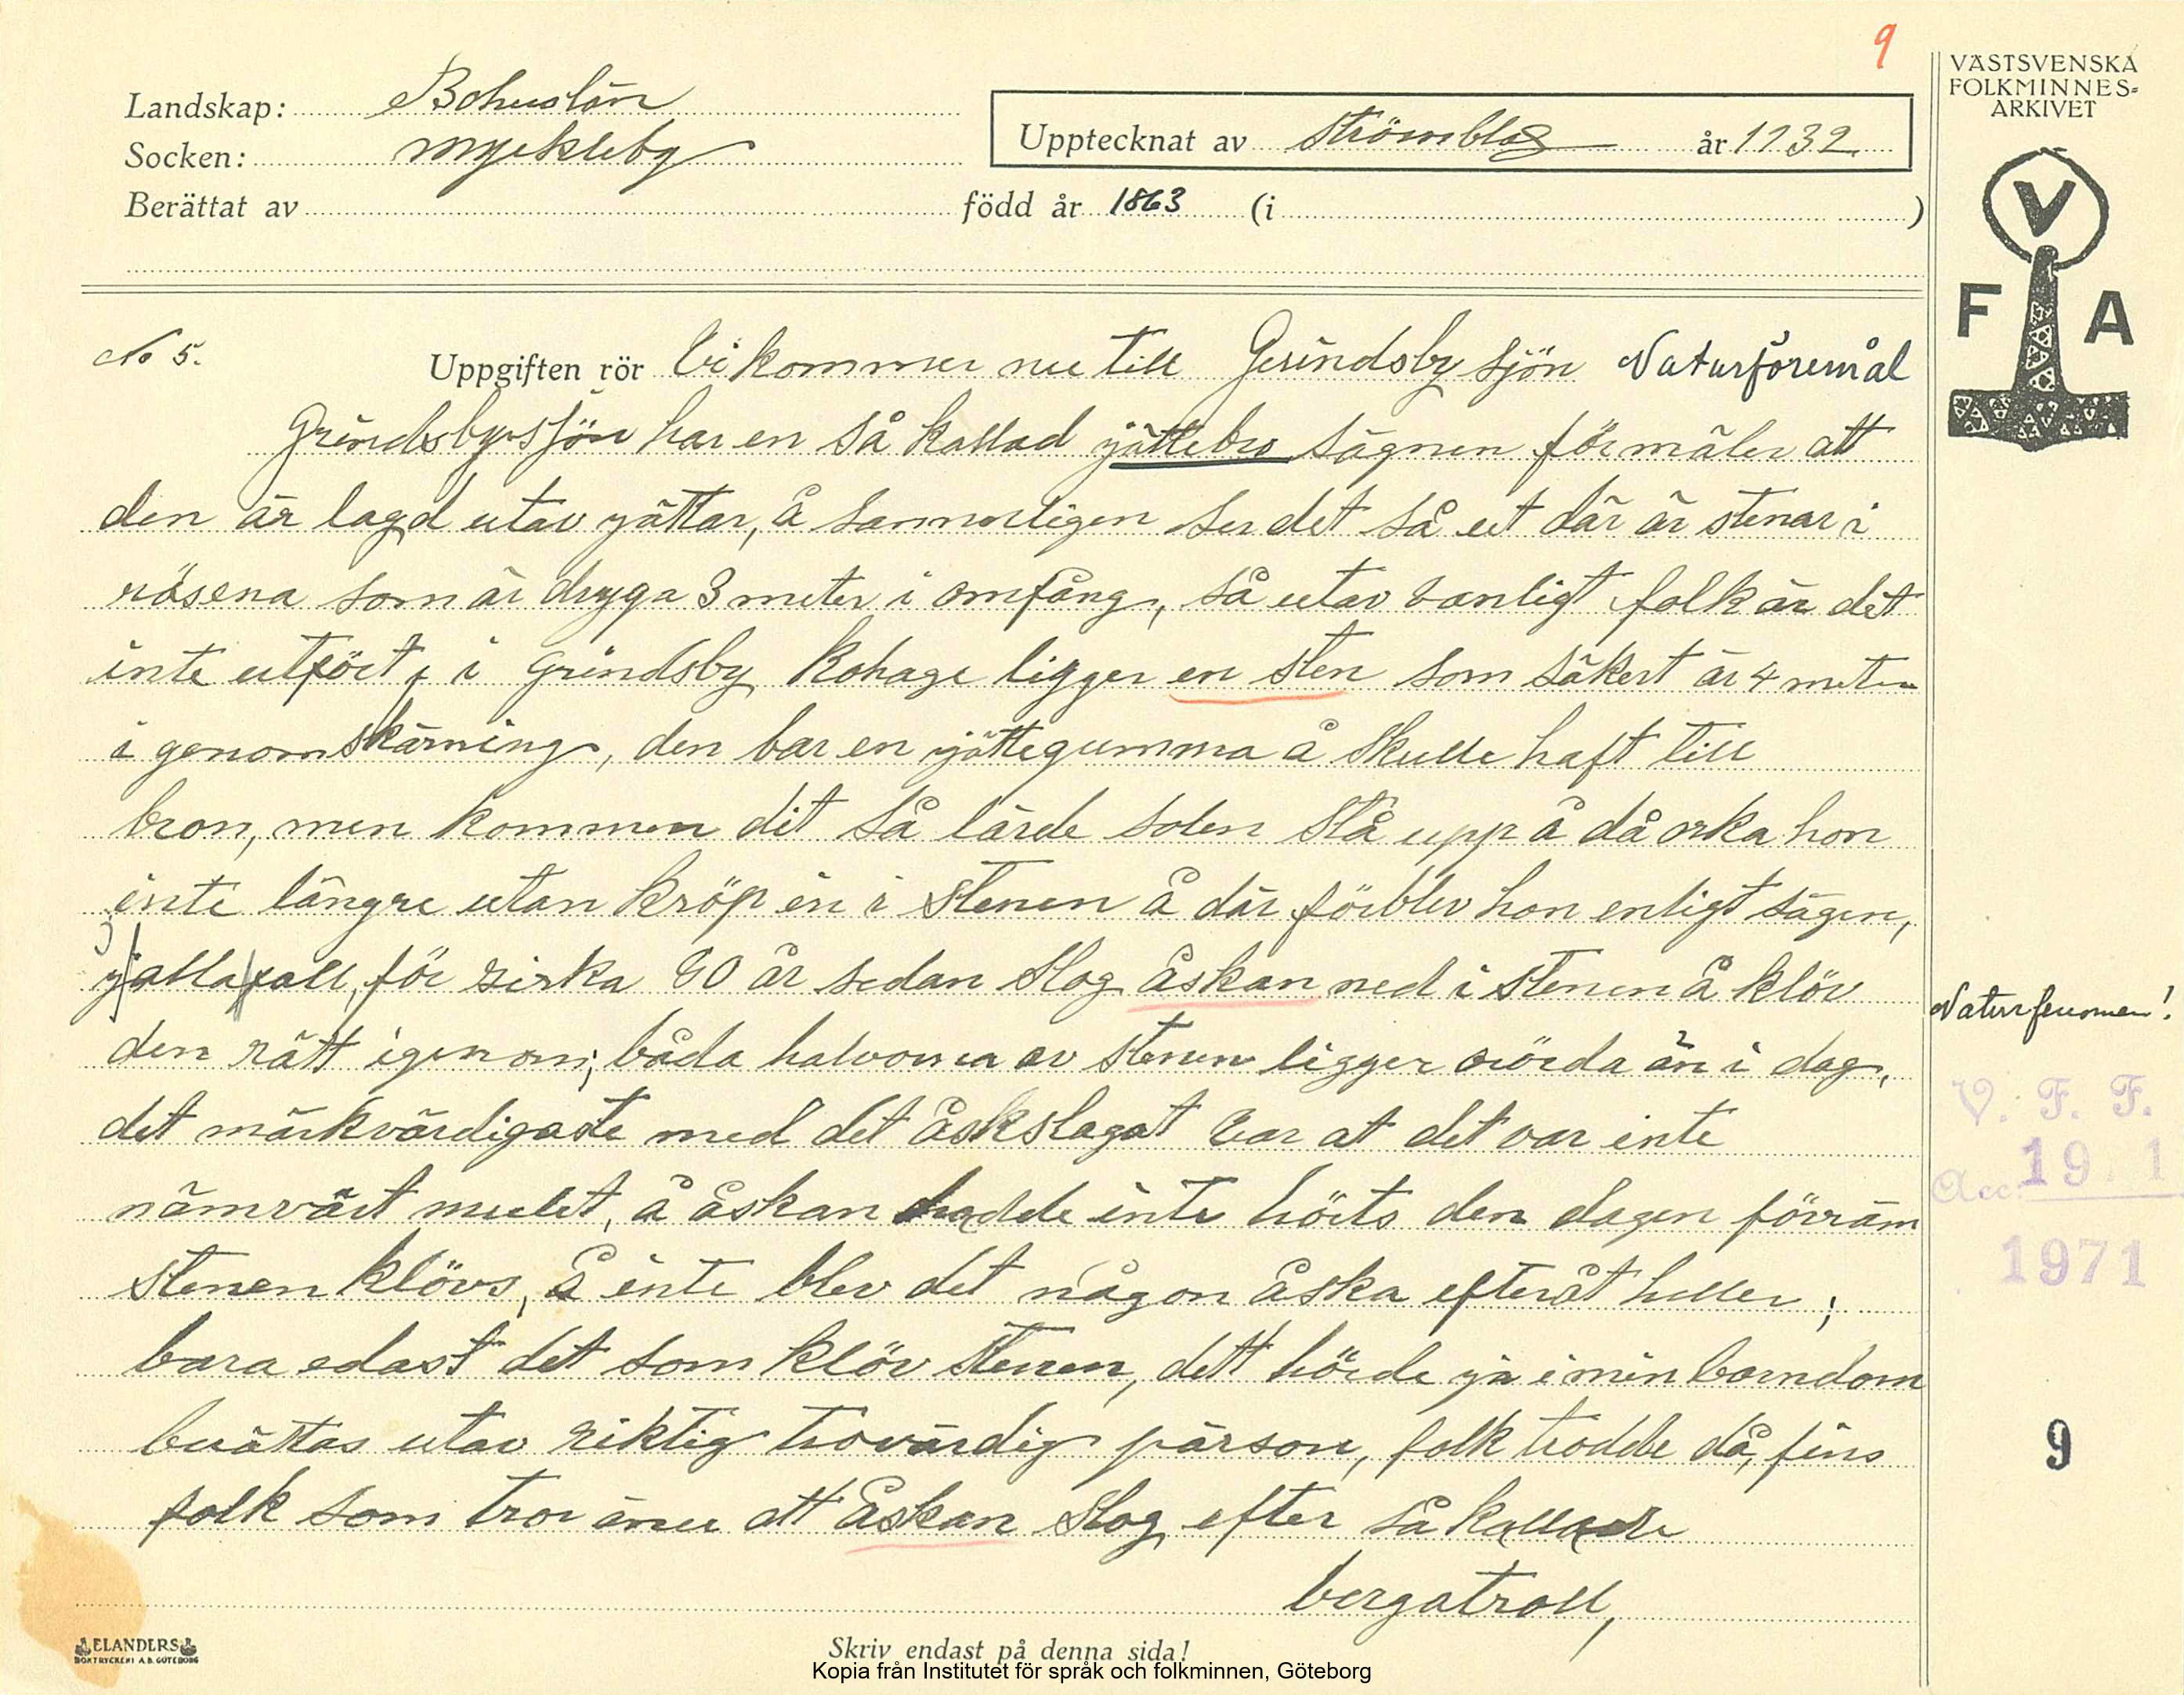 9
VÄSTSVENSKA
FOLKMINNES=
ARKIVET
V
F A
Landskap: Bohuslän
Socken: Myckleby
Upptecknat av Strömblad år 1932.
Berättat av född år 1863 (i )
No 5.
Uppgiften rör Vi kommer nu till Grindsby sjön Naturföremål
Grindsbysjön har en så kallad jättebro sägnen förmäler att
den är lagd utav jättar, å sannerligen ser det så ut där är stenar i
rösena som är dryga 3 meter i omfång, så utav vanligt folk är det
inte utfört, i Grindsby kohage ligger en sten som säkert är 4 meter
i genomskärning, den bar en jättegumma å skulle haft till
bron, men kommen dit så lärde solen stå upp å då orka hon
inte längre utan kröp in i stenen å där förblev hon enligt sägen,
i alla fall, för sirka 80 år sedan slog åskan ned i stenen å klöv
den rätt igenom; båda halvorna av stenen ligger rörda än i dag,
det märkvärdigaste med det åskslagat var at det var inte
nämvärt mulet, å åskan hadde inte hörts den dagen förräm
stenen klövs, å inte blev det någon åska efteråt heller;
bara edast det som klöv stenen, dett hörde ja i min barndom
berättas utav riktig trovärdig pärson, folk trodde då, fins
folk som tror ännu att åskan slog efter så kallade
bergatroll,
Naturfenomen!
V. F. F.
Acc. 19 1
1971
9
ELANDERS
BOKTRYCKERI A.B. GÖTEBORG
Skriv endast på denna sida!
Kopia från Institutet för språk och folkminnen, Göteborg